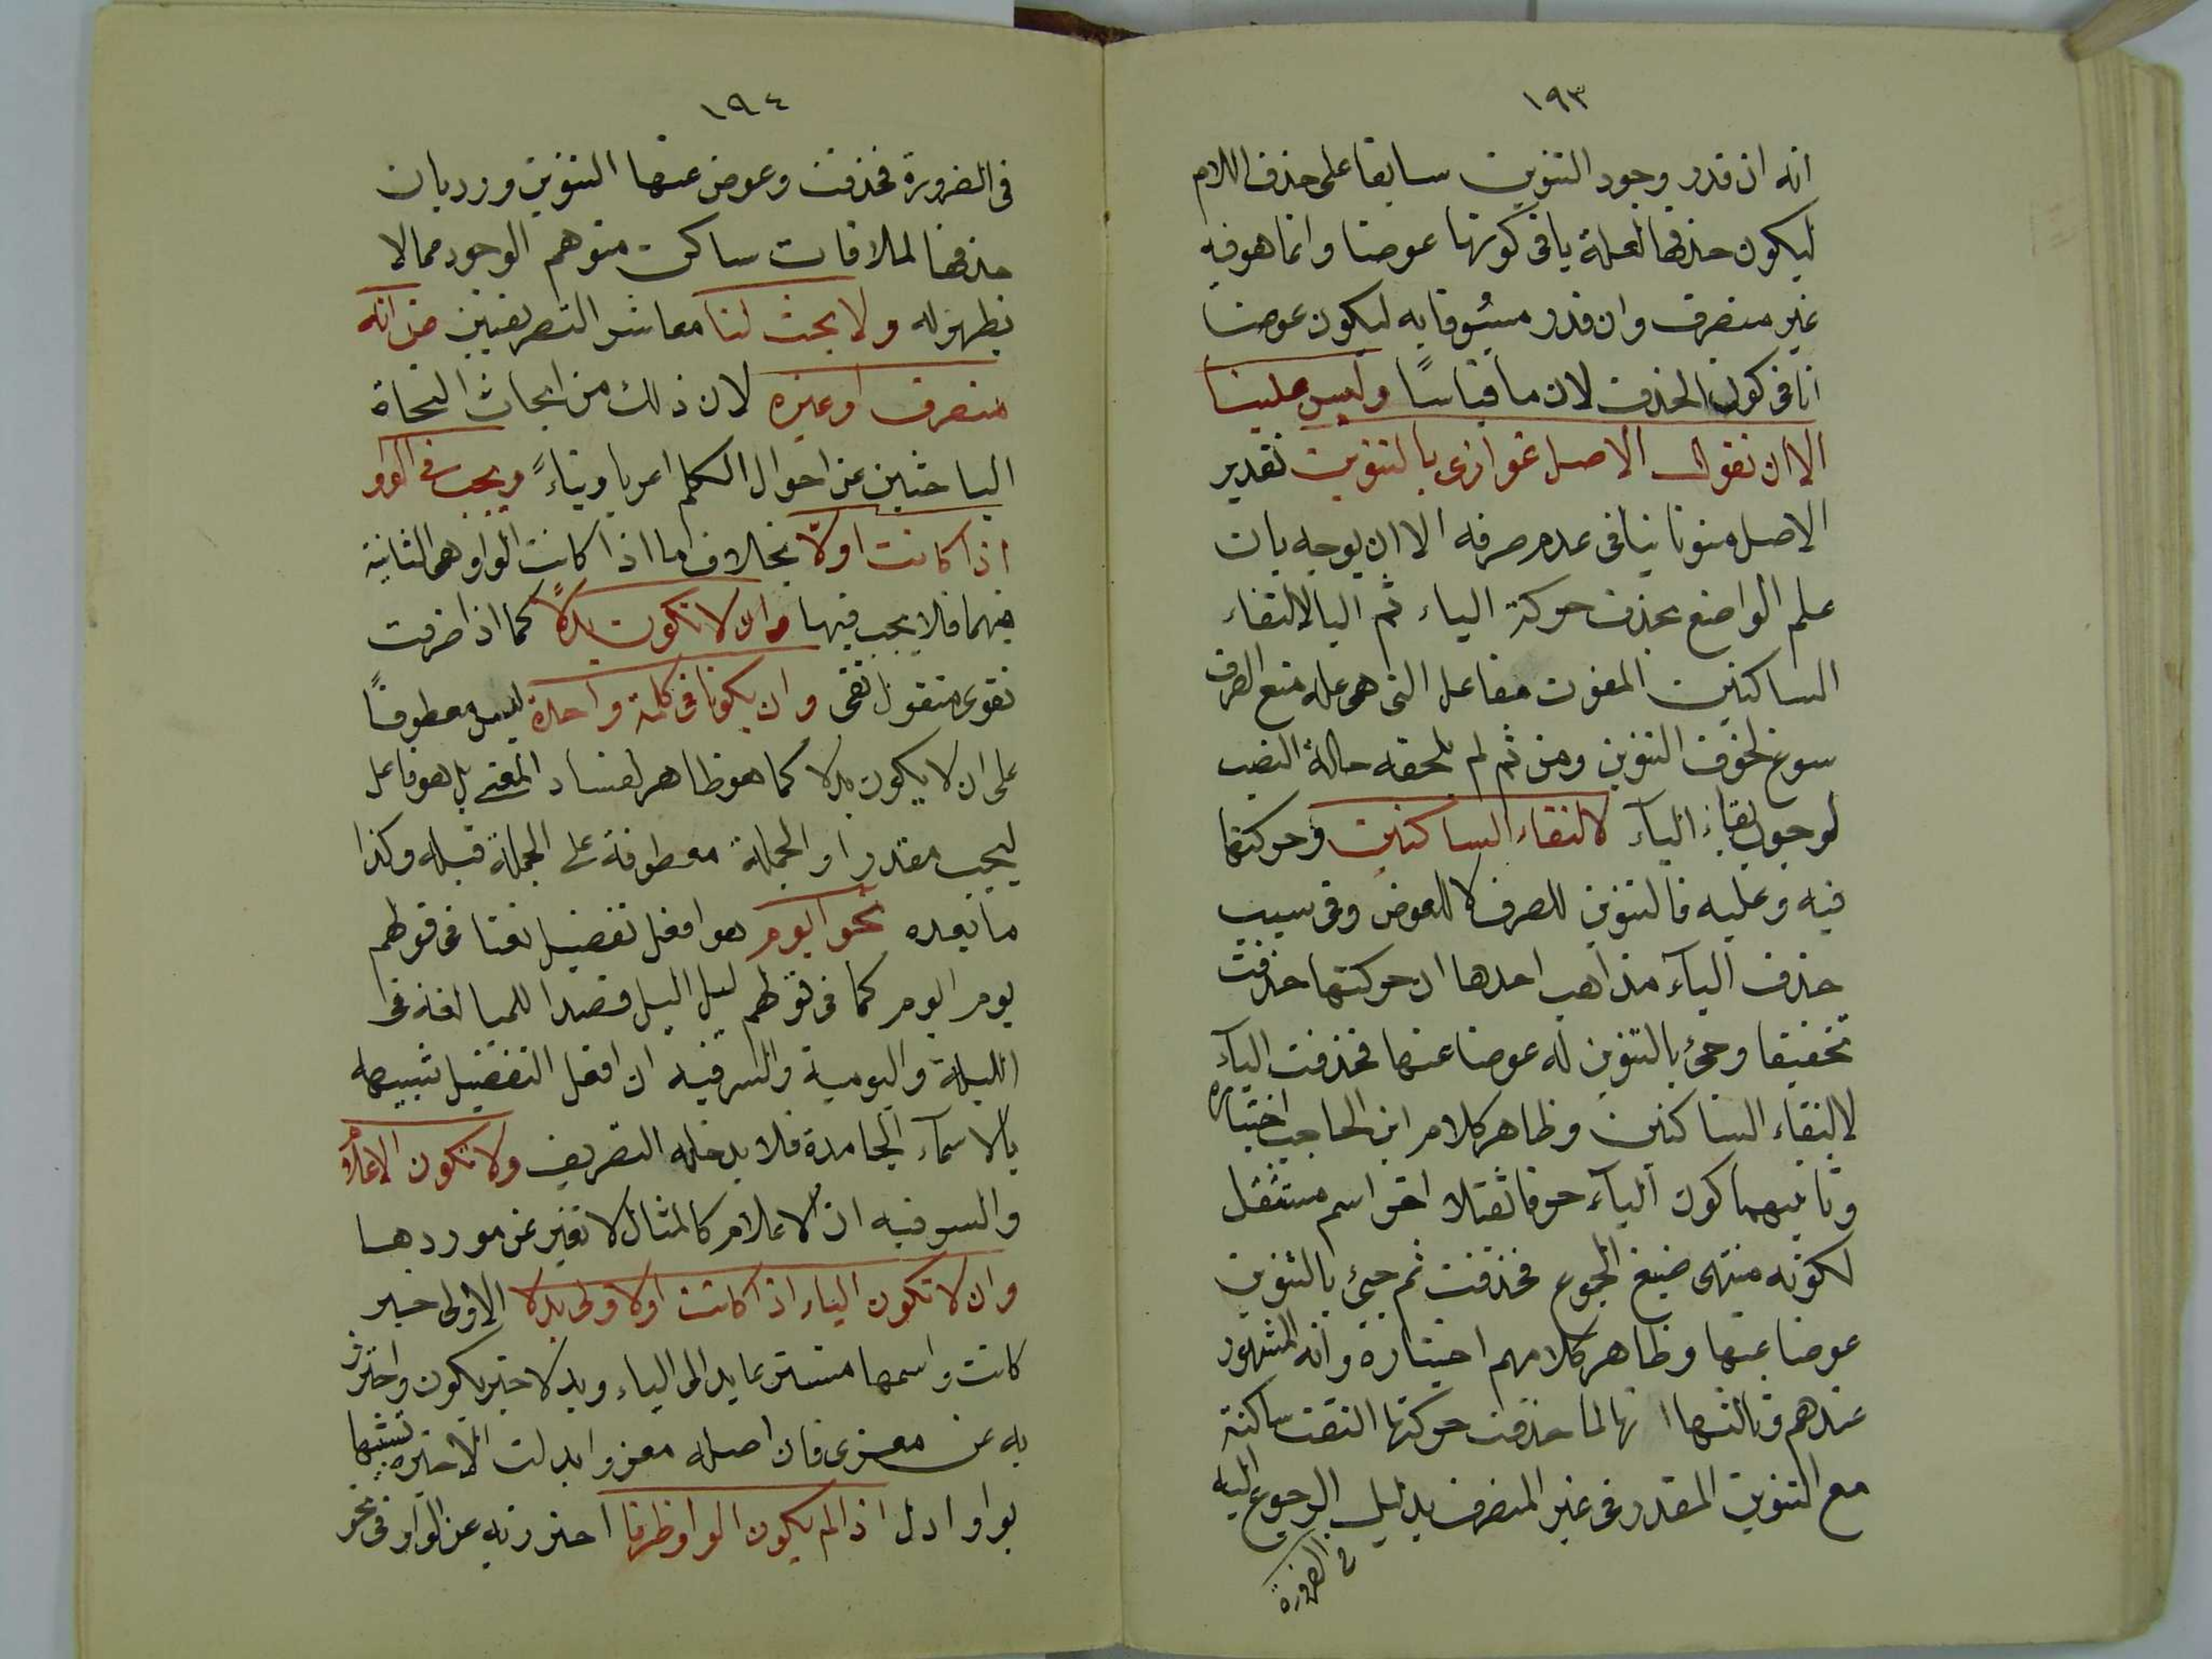 ١٩٣
انه ان قدر وجود التنوين سابقا على حذف اللام
ليكون حذفها لعلة يافى كونها عوضا وانما هو فيه
غير منصرف وان قدر مسبوقا به ليكون عوضا
نافى كون الحذف لازما قياسًا وليس علينا
الا ان نقول الاصل غوازى بالتنوين تقدير
الاصل منونا ينافى عدم صرفه الا ان يوجه بان
علم الواضع بحذف حركة الياء ثم اليا لالتقاء
الساكنين المفوت مفاعل التى هى علة منع الصرف
سوغ لحوق التنوين ومن ثم لم يلحقه حالة النصب
لوجوب بقاء الياء لالتقاء الساكنين وحركتها
فيه وعليه فالتنوين للصرف لا للعوض وفى سبب
حذف الياء مذاهب احدها ان حركتها حذفت
تخفيفا وجئ بالتنوين له عوضا عنها فحذفت الياء
لالتقاء الساكنين وظاهر كلام ابن الحاجب اختياره
وثانيهما كون الياء حرفا ثقيلا اخر اسم مستثقل
لكونه منتهى صيغ الجموع فحذفت ثم جيئ بالتنوين
عوضا عنها وظاهر كلامهم اختياره وانه المشهور
عندهم وثالثها انها لما حذفت حركتها التقت ساكنة
مع التنوين المقدر فى غير المنصرف بدليل الرجوع اليه
فى الضرورة
١٩٤
فى الضرورة فحذفت وعوض عنها التنوين ورد بان
حذفها لملاقات ساكن متوهم الوجود مما لا
نظير له ولا بحث لنا معاشر التصريفيين من انه
منصرف او غيره لان ذلك من ابحاث النحاة
الباحثين عن احوال الكلم اعرابا وبناءً ويجب فى الواو
اذا كانت اولًا بخلاف ما اذا كانت الواو هى الثانية
منهما فلا يجب فيها وان لا تكون بدلًا كما اذا خففت
تقوى فتقول تقى وان يكونا فى كلمة واحدة ليس معطوفًا
على ان لا يكون بدلا كما هو ظاهر لفساد المعنى بل هو فاعل
ليجب مقدرا والجملة معطوفة على الجملة قبله وكذا
ما بعده نحو ايوم هو افعل تفضيل نعتا فى قولهم
يوم ايوم كما فى قولهم ليل اليل قصدا للمبالغة فى
الليلة واليومية والسر فيه ان افعل التفضيل شبيهه
بالاسماء الجامدة فلا يدخله التصريف ولا تكون الاعلام
والسر فيه ان الاعلام كالمثال لا تغير عن موردها
وان لا تكون الياء اذا كانت اولا ولى بدلا الاولى خبر
كانت واسمها مستتر عايد الى الياء وبدلا خبر يكون واحترز
به عن معزى فان اصله معزو ابدلت الاخيرة تشبها
بواو ادل اذا لم يكون الواو ظرفا احترز به عن الواو فى نحو